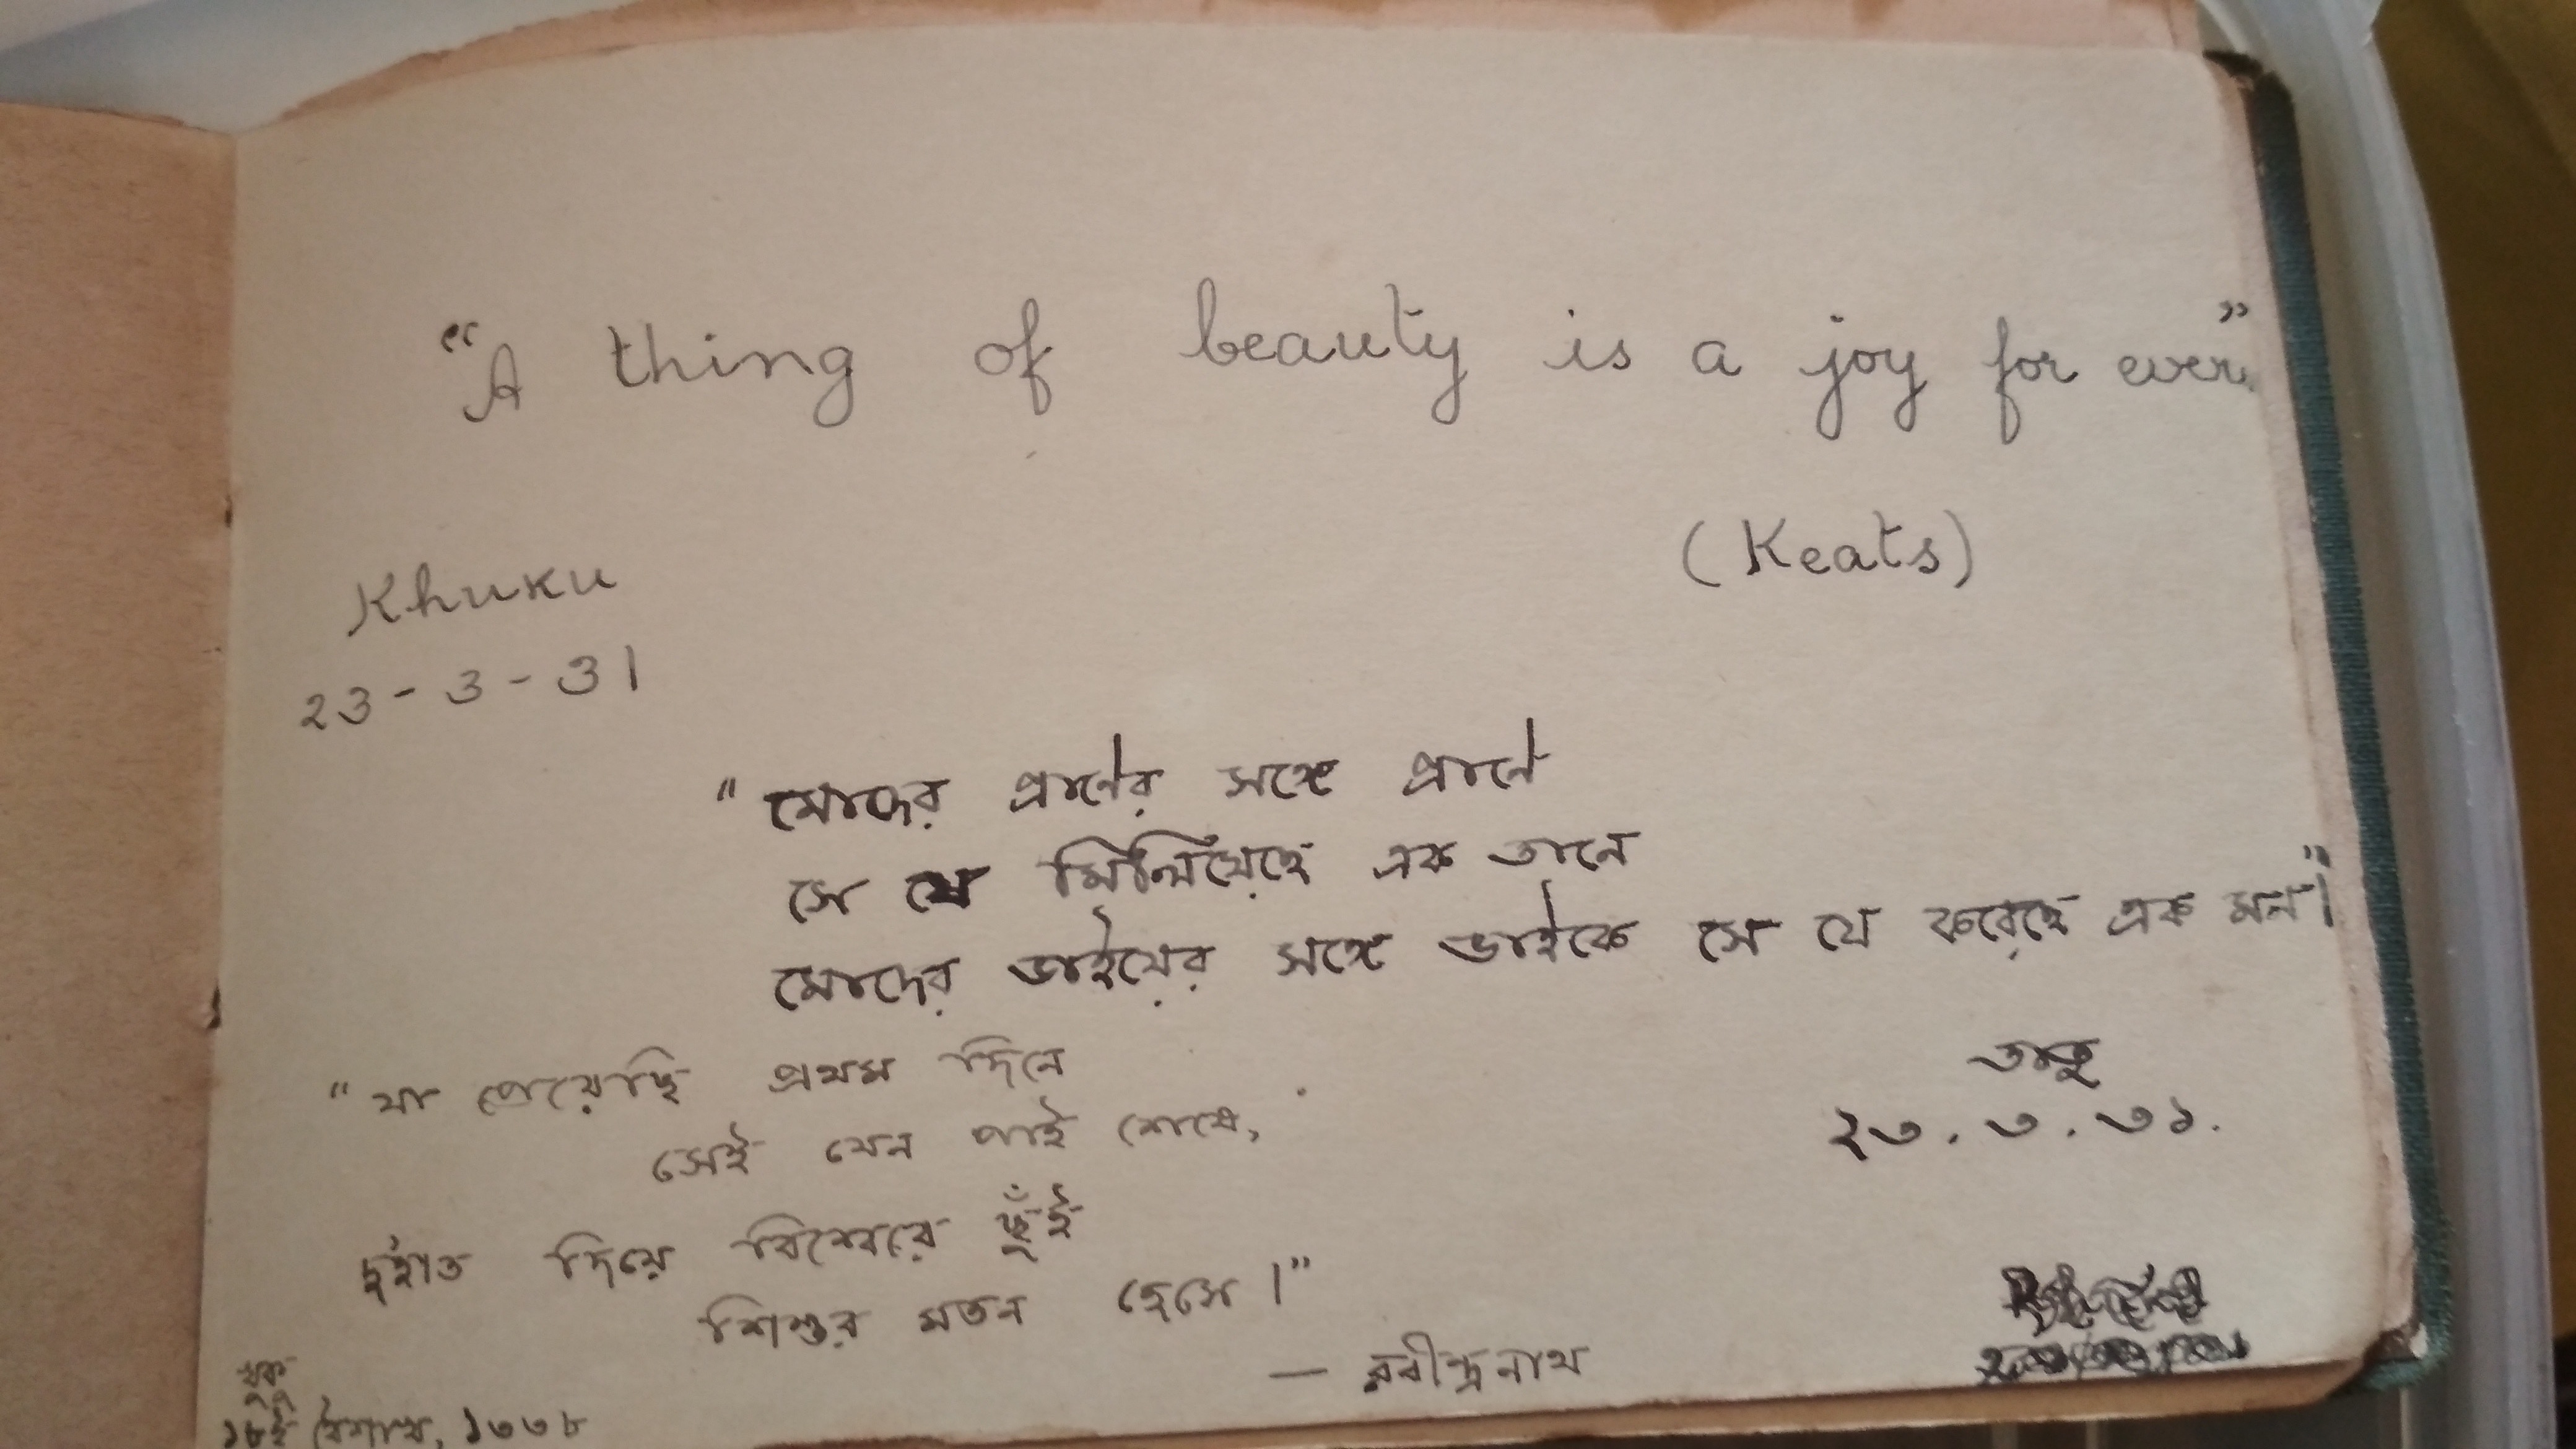 "A thing of beauty is a joy for ever."
(Keats)
Khuku
23-3-31
"মোদের প্রাণের সঙ্গে প্রাণে
সে যে মিলিয়েছে এক তানে
মোদের ভাইয়ের সঙ্গে ভাইকে সে যে করেছে এক মন।"
তাতু
২৩.৩.৩১.
"যা পেয়েছি প্রথম দিনে
সেই যেন পাই শেষে,
দুহাত দিয়ে বিশ্বেরে ছুঁই
শিশুর মতন হেসে।"
— রবীন্দ্রনাথ
খুকু
১৮ই বৈশাখ, ১৩৩৮